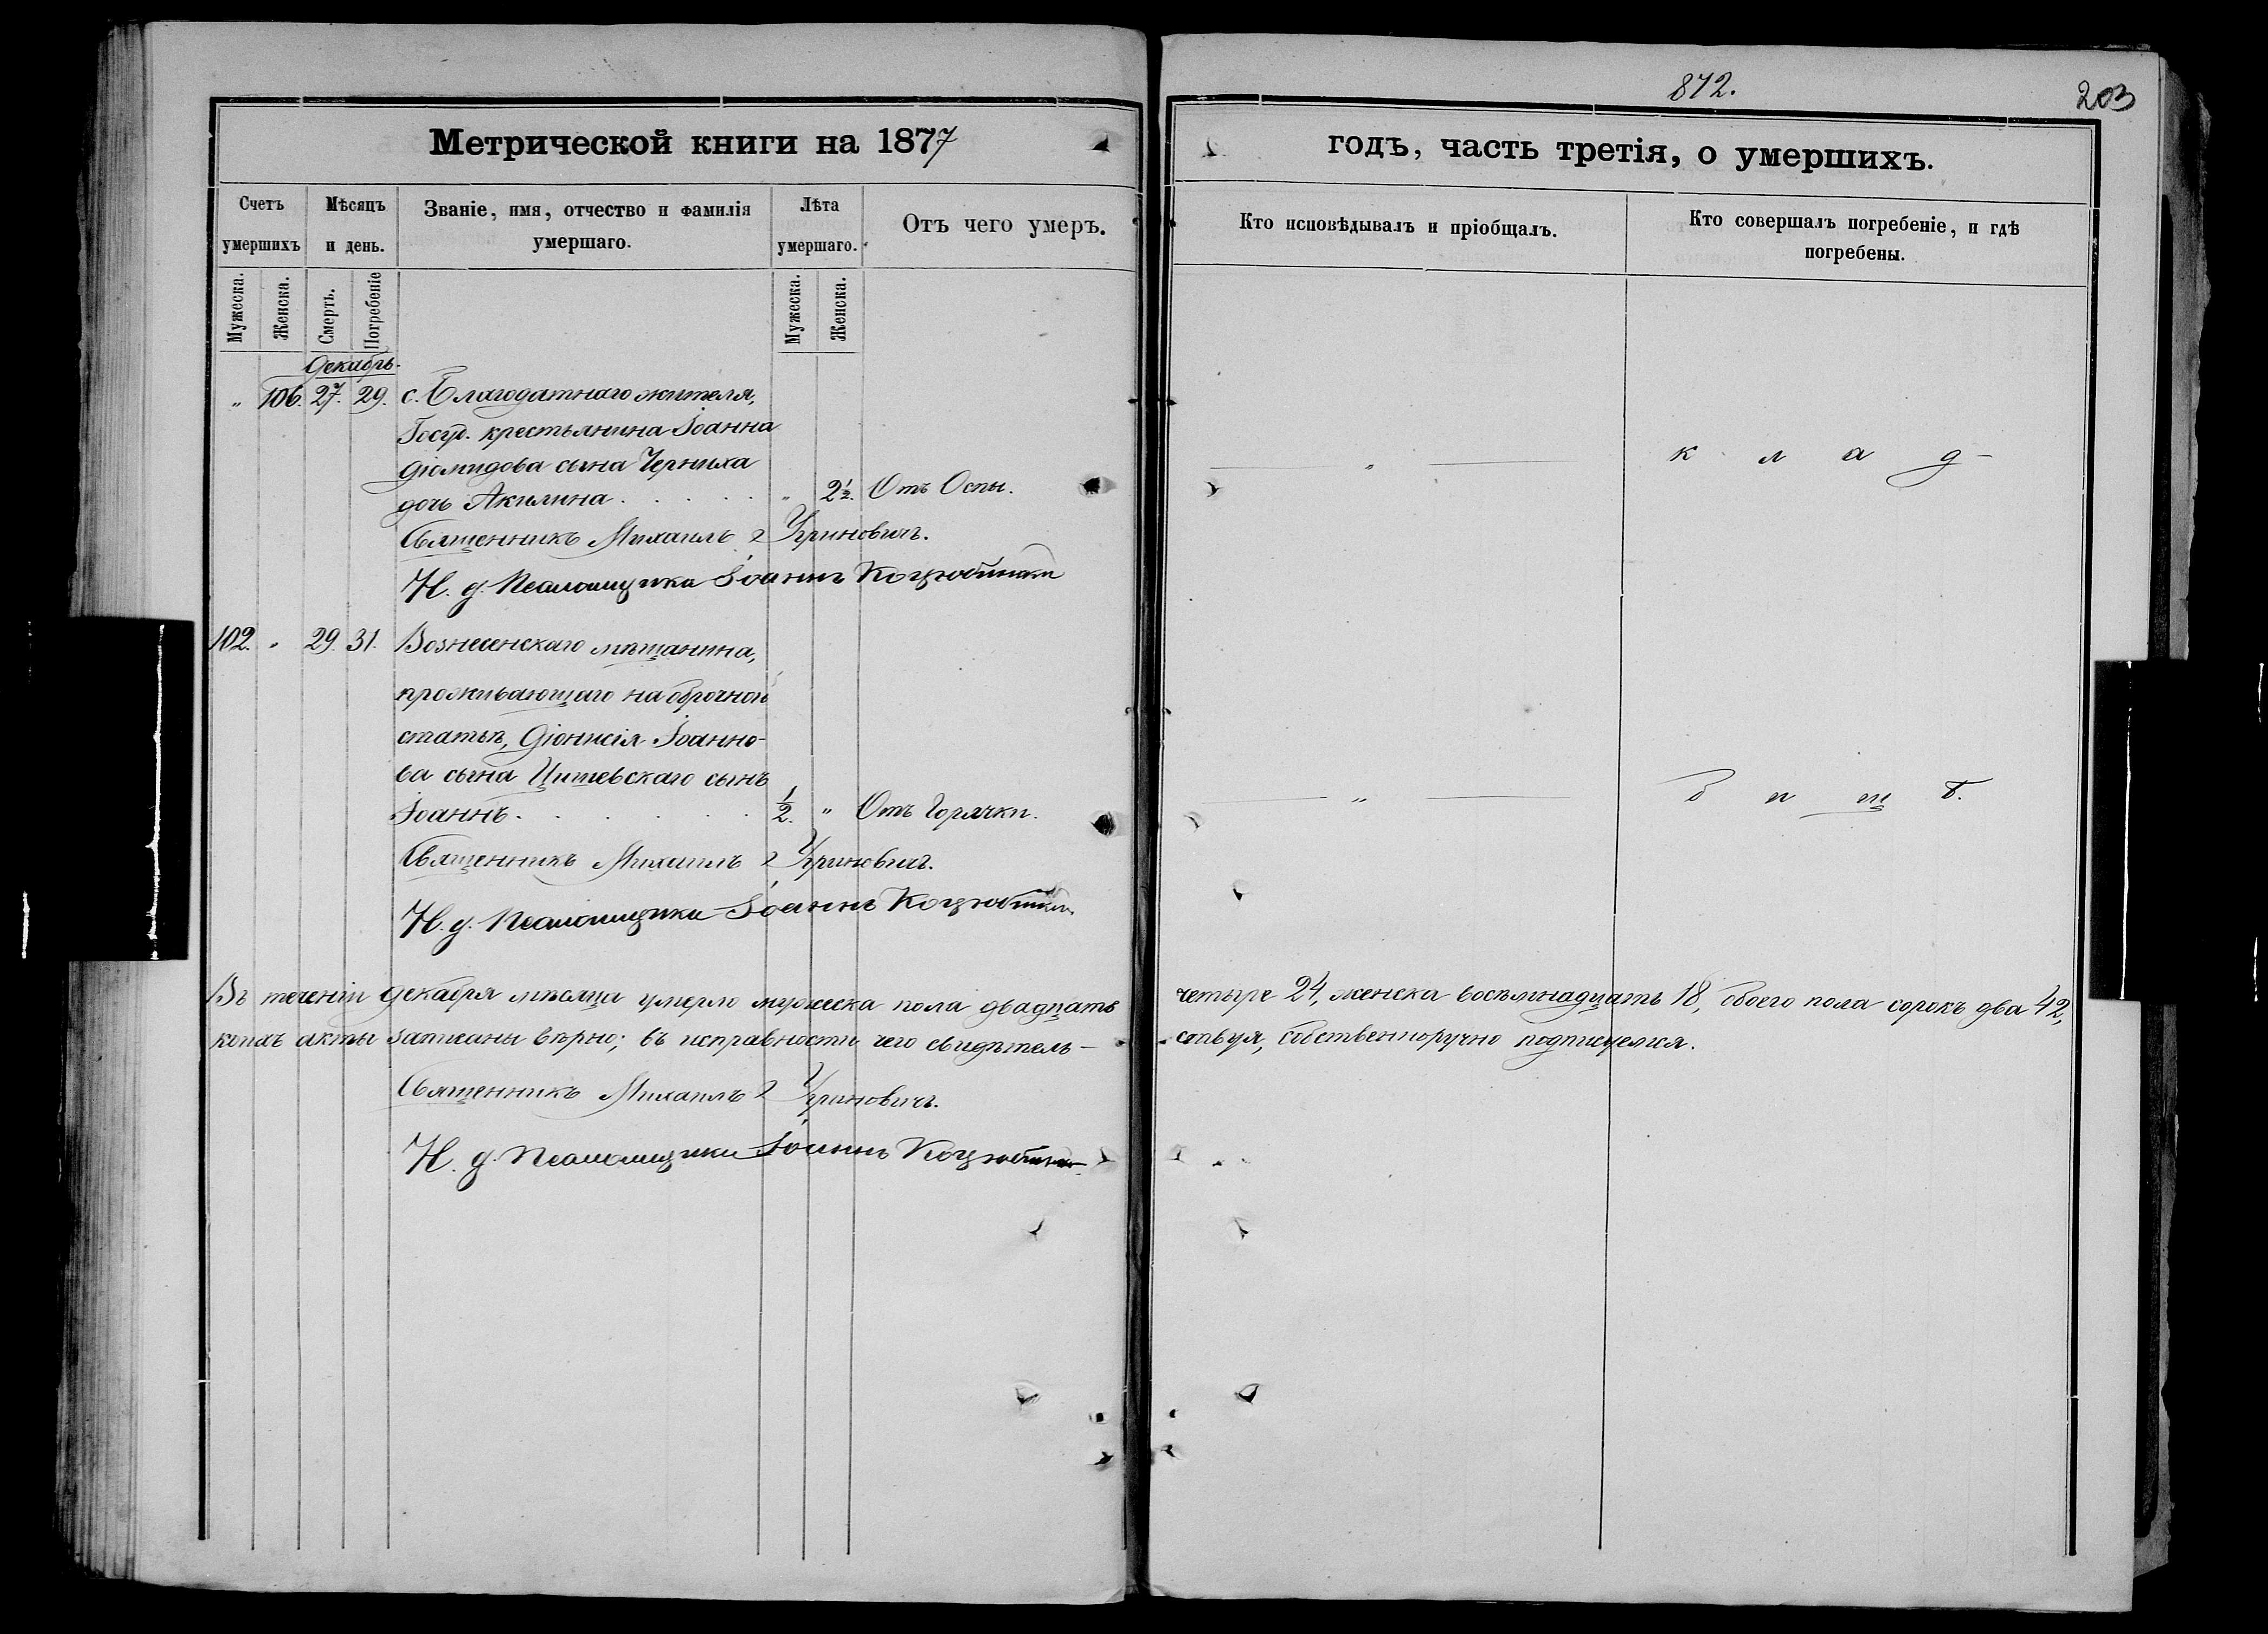 872.
203
Метрической книги на 1877
годъ, часть третія, о умершихъ.
Счетъ умершихъ
Мѣсяцъ и день.
Званіе, имя, отчество и фамилія умершаго.
Лѣта умершаго.
Отъ чего умеръ.
Кто исповѣдывалъ и пріобщалъ.
Кто совершалъ погребеніе, и гдѣ погребены.
Мужеска.
Женска.
Смерть.
Погребеніе
Мужеска.
Женска.
Декабрь.
" 106. 27. 29. с. Благодатнаго жителя,
Госуд. крестьянина Іоанна
Діомидова сына Черниха
дочь Акилина . . . . . " 2½. Отъ Оспы.
" к л а д -
Священникъ Михаилъ Гриновичъ.
И. д. Псаломщика Іоаннъ Коцюбинскій
102. " 29. 31. Вознесенскаго мѣщанина,
проживающаго на оброчной
статьѣ, Діонисія Іоанно-
ва сына Цишевскаго сынъ
Іоаннъ. . . . . . ½. " Отъ Горячки.
" б и щ ѣ.
Священникъ Михаилъ Гриновичъ.
И. д. Псаломщика Іоаннъ Коцюбинскій
Въ теченіи декабря мѣсяца умерло мужеска пола двадцать четыре 24, женска восемнадцать 18, обоего пола сорокъ два 42,
коихъ акты записаны вѣрно; въ исправности чего свидѣтель-ствуя, собственноручно подписуемся.
Священникъ Михаилъ Гриновичъ.
И. д. Псаломщика Іоаннъ Коцюбинскій